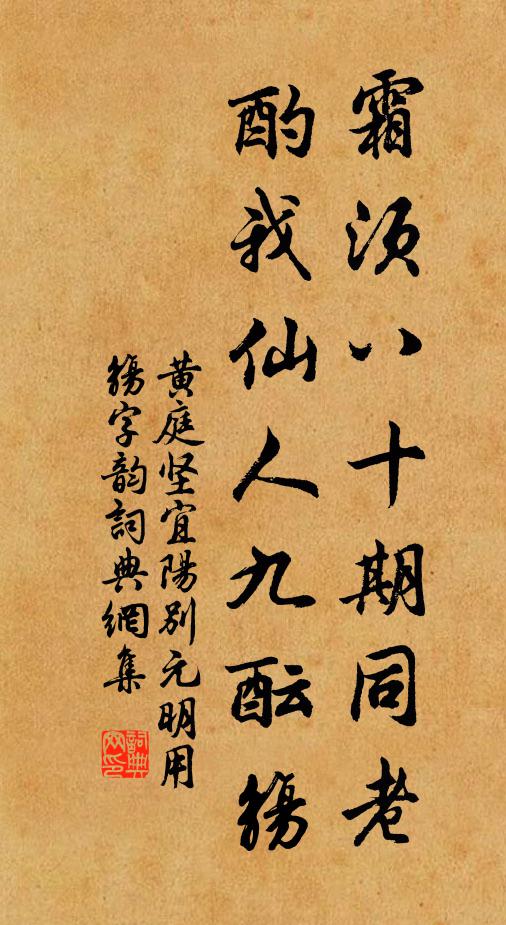 霜须八十期同老
酌我仙人九酝觞
黄庭坚宜陽别元明用
觞字韵詞典網集
詞典
网印